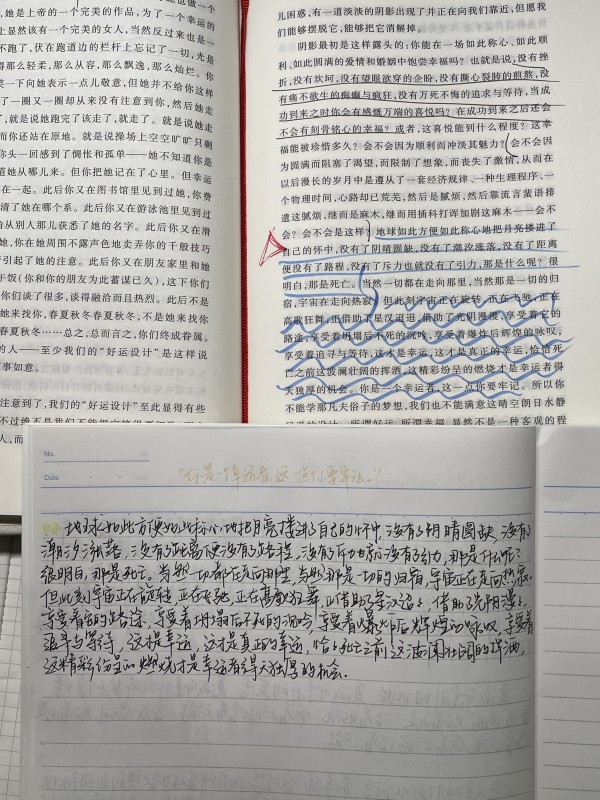 她是上帝的一个完美的作品，为了一个幸运的
上显然该有一个完美的女人，当然反过来也是一
不跑了，伏在跑道边的栏杆上忘记了一切，光是
得那么轻柔，那么从容，那么飘逸，那么灿烂。你
笑一下向她表示一点儿敬意，但她并不给你这样
了一圈又一圈却从来没有注意到你，然后她走
了，就是说她跑完了该走了，就走了。就是说她走
而你还站在原地。就是说操场上空空旷旷只剩
你头一回感到了惆怅和孤单——她不知道你是
道她从哪儿来。但你把她记在了心里。但幸运
在一起。此后你又在图书馆里见到过她，你费
清了她在哪个系。此后你又在游泳池里见到过
后从别人那儿获悉了她的名字。此后你又在滑
她，你在她周围不露声色地卖弄你的千般技巧
引起了她的注意。此后你又在朋友家里和她
午饭（你和你的朋友为此蓄谋已久），这下你们
你们谈了很多，谈得融洽而且热烈。此后不是
她来找你，春夏秋冬春夏秋冬，不是她来找你
春夏秋冬……总之，总而言之，你们终成眷属。
的人——至少我们的“好运设计”是这样说
事如意。
注意到了，我们的“好运设计”至此显得有些
儿困惑，有一道淡淡的阴影出现了并正在向我们靠近，但愿我
们能够摆脱它，能够把它消解掉。
阴影最初是这样露头的：你能在一场如此称心、如此顺
利、如此圆满的爱情和婚姻中饱尝幸福吗？也就是说，没有挫
折，没有坎坷，没有望眼欲穿的企盼，没有撕心裂肺的煎熬，没
有痛不欲生的痴癫与疯狂，没有万死不悔的追求与等待，当成
功到来之时你会有感慨万端的喜悦吗？在成功到来之后还会
不会有刻骨铭心的幸福？或者，这喜悦能到什么程度？这幸
福能被珍惜多久？会不会因为顺利而冲淡其魅力？会不会因
为圆满而阻塞了渴望，而限制了想象，而丧失了激情，从而在
以后漫长的岁月中是遵从了一套经济规律、一种生理程序、一
个物理时间，心路却已荒芜，然后是腻烦，然后靠流言蜚语排
遣这腻烦，继而是麻木，继而用插科打诨加剧这麻木——会不
会？会不会是这样？地球如此方便如此称心地把月亮搂进了
自己的怀中，没有了阴晴圆缺，没有了潮汐涨落，没有了距离
便没有了路程，没有了斥力也就没有了引力，那是什么呢？很
明白，那是死亡。当然一切都在走向那里，当然那是一切的归
宿，宇宙在走向热寂。但此刻宇宙正在旋转，正在飞驰，正在
高歌狂舞，正借助了星汉迢迢，借助了光阴漫漫，享受着它的
路途，享受着坍塌后不死的沉吟，享受着爆炸后辉煌的咏叹，
享受着追寻与等待，这才是幸运，这才是真正的幸运，恰恰死
亡之前这波澜壮阔的挥洒，这精彩纷呈的燃烧才是幸运者得
天独厚的机会。你是一个幸运者，这一点你要牢记。所以你
不能学那凡夫俗子的梦想，我们也不能满意这晴空朗日水静
所谓好运，所谓幸福，显然不是一种客观的程
No.
Date
“你是一个幸运者，这一点你要牢记。”
地球如此方便如此称心地把月亮搂进了自己的怀中，没有了阴晴圆缺，没有了
潮汐涨落，没有了距离便没有了路程，没有了斥力也就没有了引力，那是什么呢？
很明白，那是死亡。当然一切都在走向那里，当然那是一切的归宿，宇宙正在走向热寂。
但此刻宇宙正在旋转，正在飞驰，正在高歌狂舞，正借助了星汉迢迢，借助了光阴漫漫，
享受着它的路途，享受着坍塌后不死的沉吟，享受着爆炸后辉煌的咏叹，享受着
追寻与等待，这才是幸运，这才是真正的幸运，恰恰死亡之前这波澜壮阔的挥洒，
这精彩纷呈的燃烧才是幸运者得天独厚的机会。